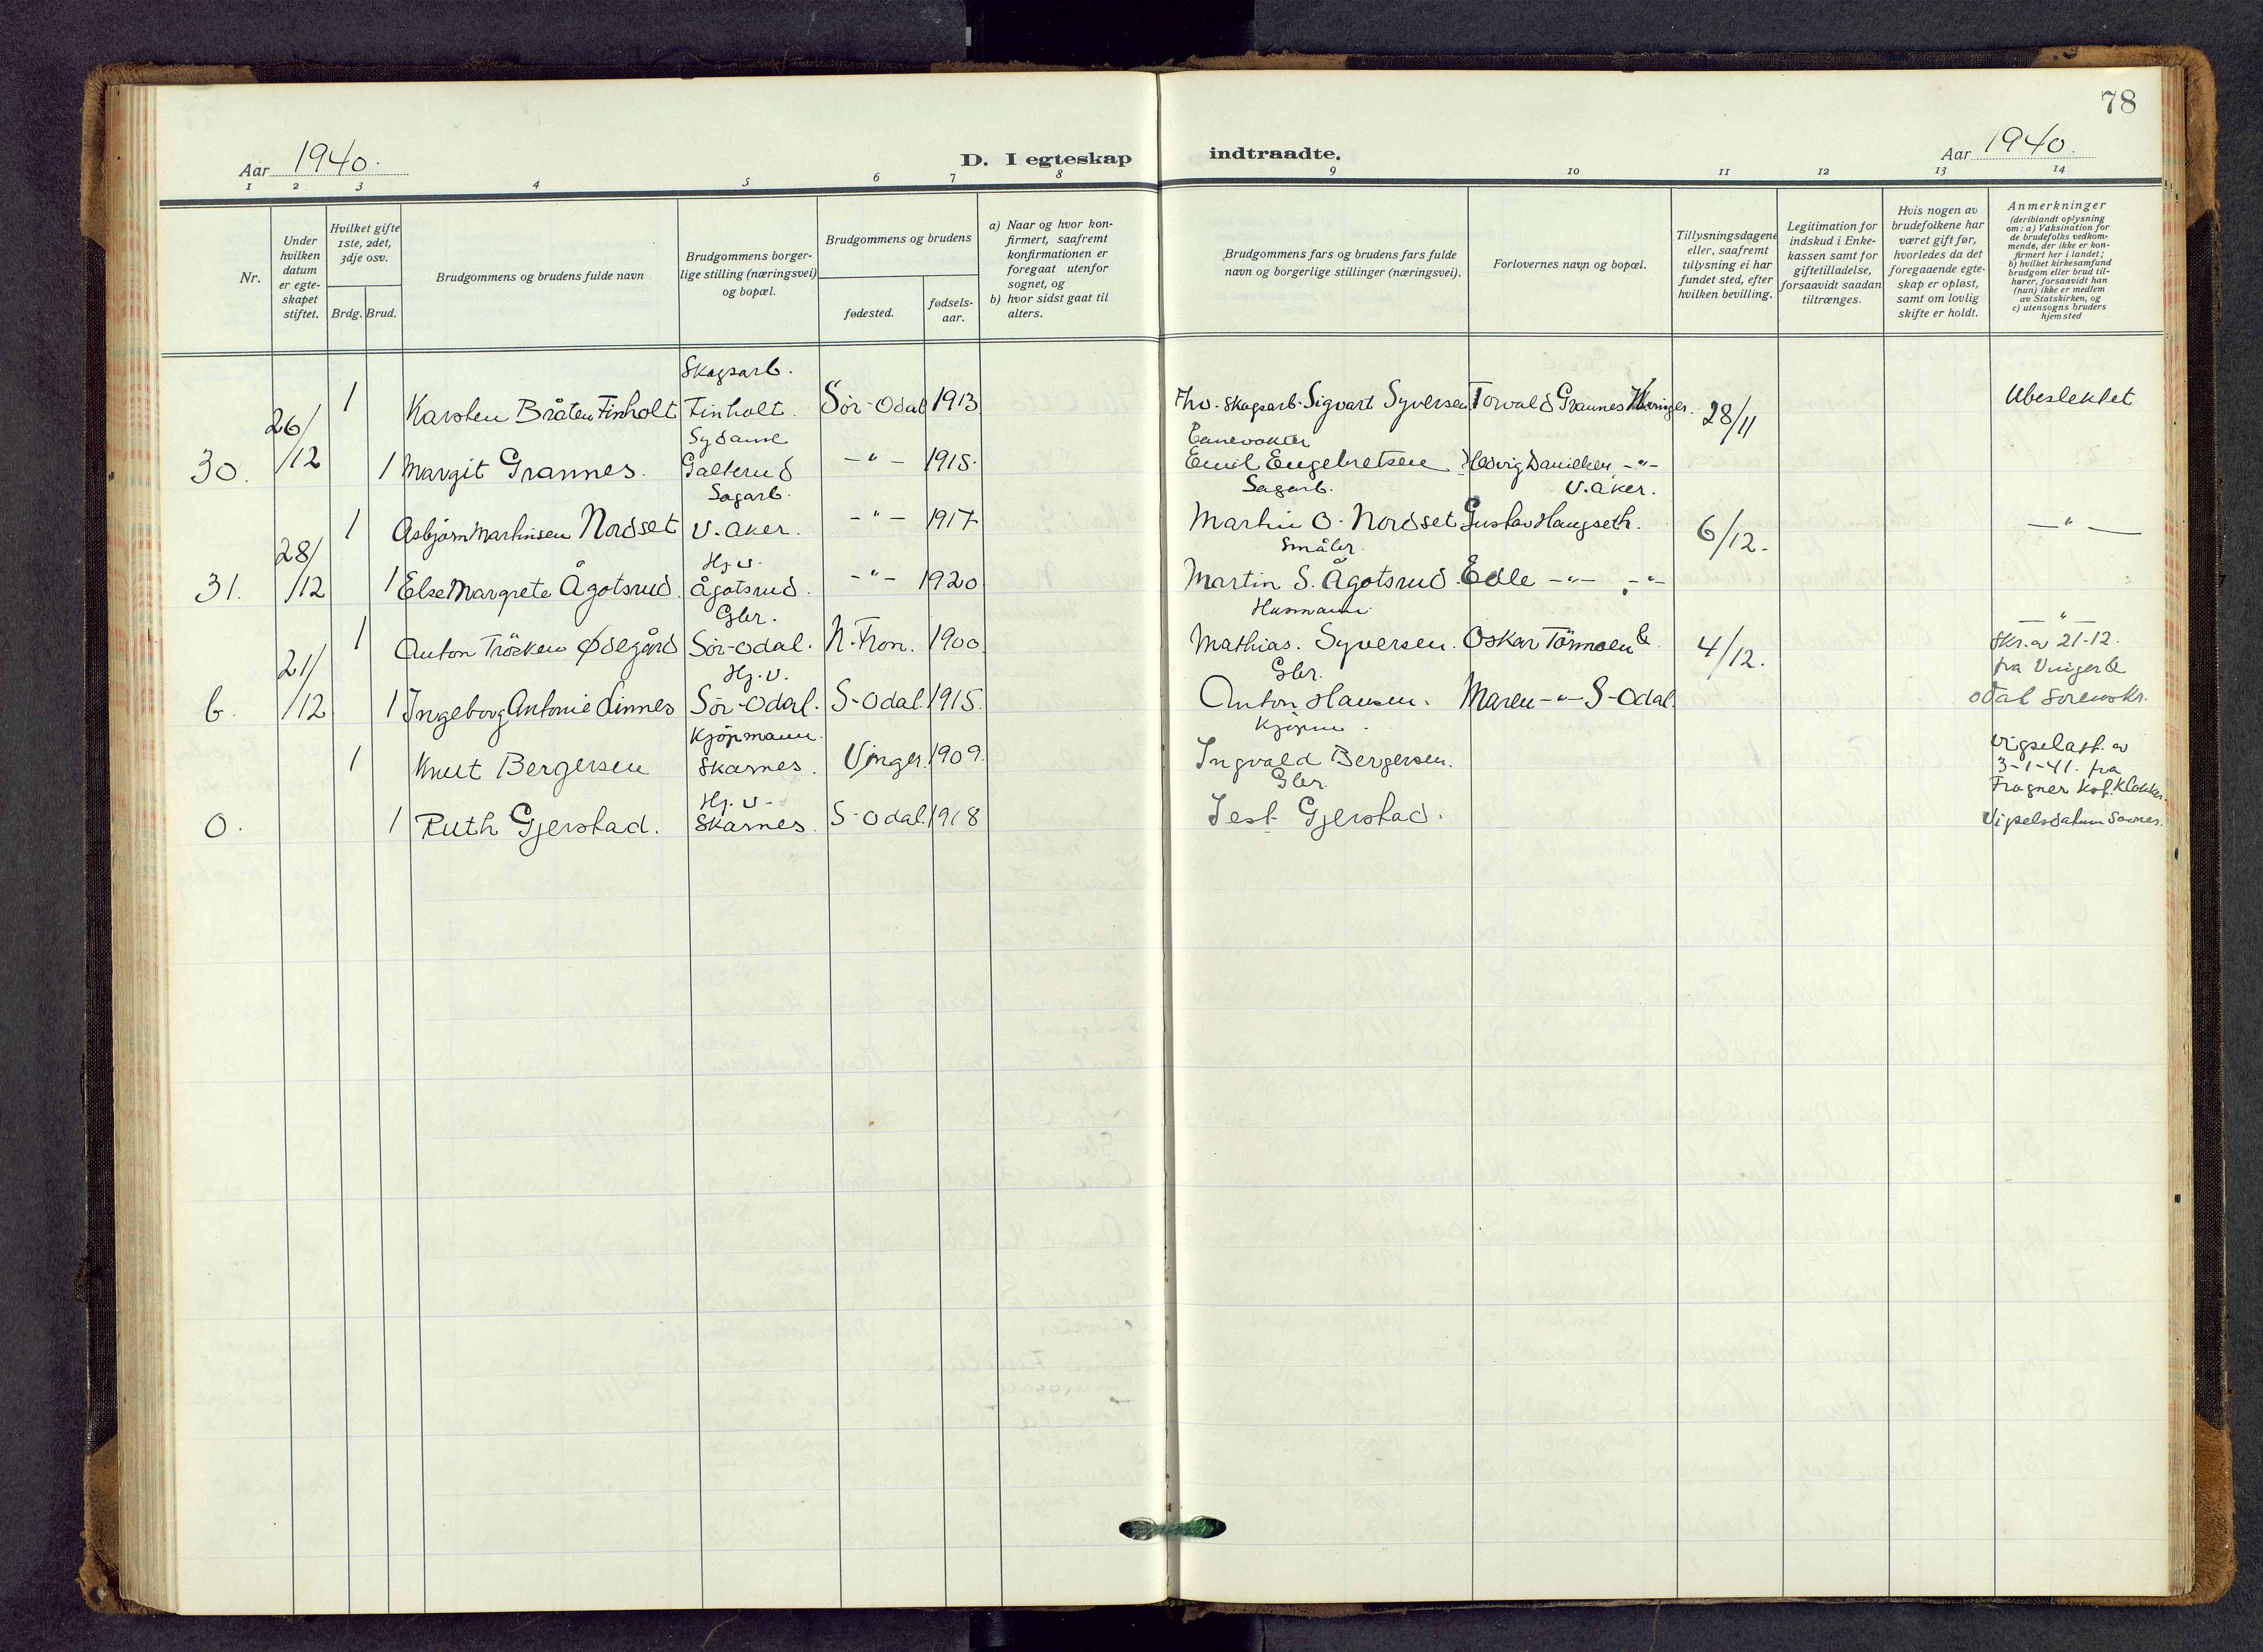 78
Aar 1940.
D. I egteskap indtraadte.
Aar 1940.
1 2 3 4 5 6 7 8 9 10 11 12 13 14
Nr.
Under hvilken datum er egte- skapet stiftet.
Hvilket gifte 1ste, 2det, 3dje osv.
Brdg. Brud.
Brudgommens og brudens fulde navn
Brudgommens borger- lige stilling (næringsvei) og bopæl.
Brudgommens og brudens
fødested.
fødsels- aar.
a) Naar og hvor kon- firmert, saafremt konfirmationen er foregaat utenfor sognet, og
b) hvor sidst gaat til alters.
Brudgommens fars og brudens fars fulde navn og borgerlige stillinger (næringsvei).
Forlovernes navn og bopæl.
Tillysningsdagene eller, saafremt tillysning ei har fundet sted, efter hvilken bevilling.
Legitimation for indskud i Enke- kassen samt for giftetilladelse, forsaavidt saadan tiltrænges.
Hvis nogen av brudefolkene har været gift før, hvorledes da det foregaaende egte- skap er opløst, samt om lovlig skifte er holdt.
Anmerkninger (deriblandt oplysning om: a) Vaksination for de brudefolks vedkom- mende, der ikke er kon- firmert her i landet; b) hvilket kirkesamfund brudgom eller brud til- hører, forsaavidt han (hun) ikke er medlem av Statskirken, og c) utensogns bruders hjemsted
Skogsarb.
26/12 1 Karsten Bråten Finholt Finholt. Sør-Odal 1913 Fhv. skogsarb. Sigvart Syversen Torvald Grannes 28/11 Ubeslektet
Sydame Banevokter
30. 1 Margit Grannes. Galterud -"- 1915. Emil Engebretsen Hedvig Danielsen -"-
Sagarb. Sagarb. V. Åker.
28/12 1 Asbjørn Martinsen Nordset V. Åker. -"- 1917 Martin O. Nordset Gustav Haugseth. 6/12. -"-
Hj. v. Småbr.
31. 1 Else Margrete Ågotsrud. Ågotsrud. -"- 1920 Martin S. Ågotsrud. Edle -"- -"-
Gbr. Husmann. -"-
21/12 1 Anton Tröskew Ødegård Sør-Odal. N. Fron. 1900 Mathias. Syversen. Oskar Törmoen 4/12. Skr. av 21-12.
Hj. v. Gbr. fra Vinger &
b. 1 Ingeborg Antonie Linnes Sør-Odal. S-Odal. 1915. Anton Hansen. Maren -"- S-Odal. Odal Sorenskr.
Kjøpmann. Kjøpm.
1 Knut Bergersen Skarnes. Vinger. 1909. Ingvald Bergersen. Vigselatt. av 3-1-41. fra
Hj. v. Gbr. Frogner kgf. Klokker.
0. 1 Ruth Gjerstad. Skarnes. S-Odal. 1918 Gjerstad. Vigselsdatum savnes.